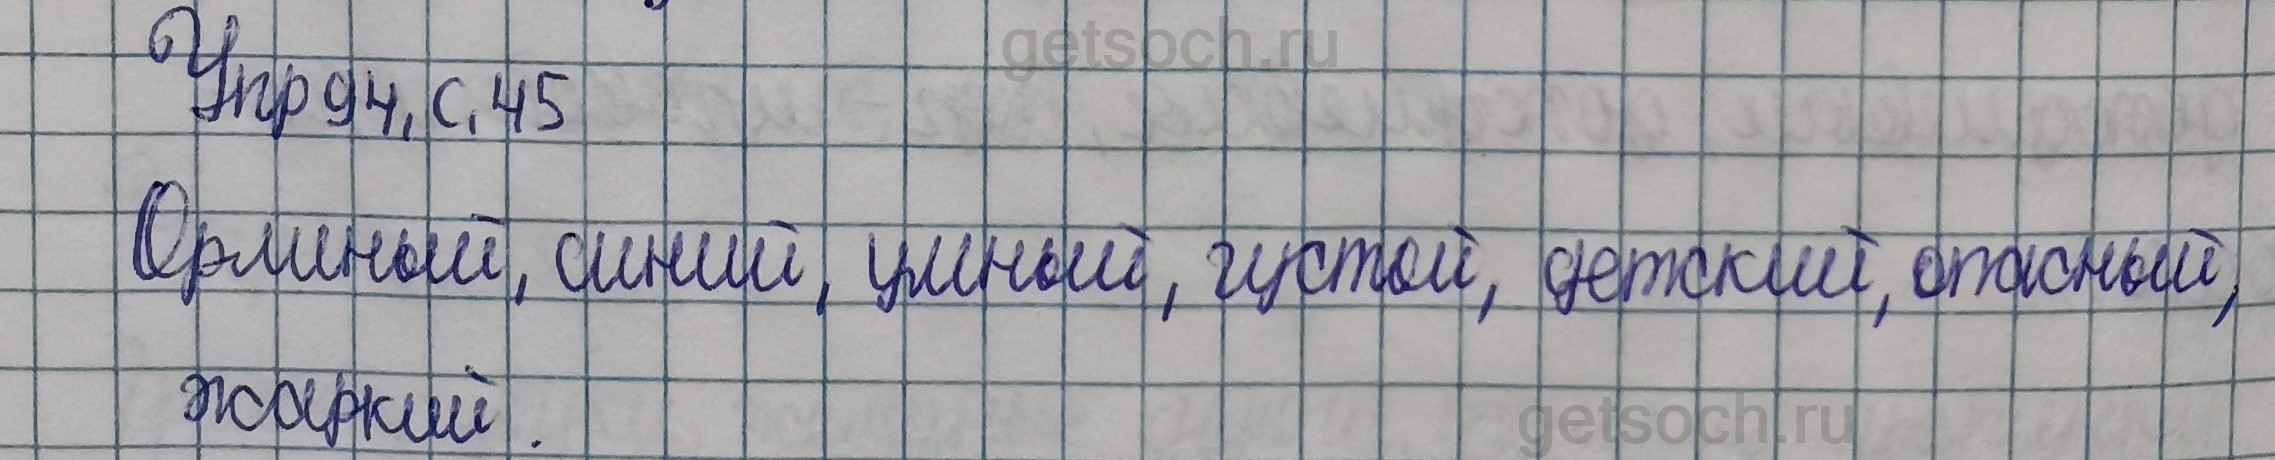 getsoch.ru
Упр 94, с. 45
Орлиный, синий, умный, густой, детский, опасный,
жаркий.
getsoch.ru